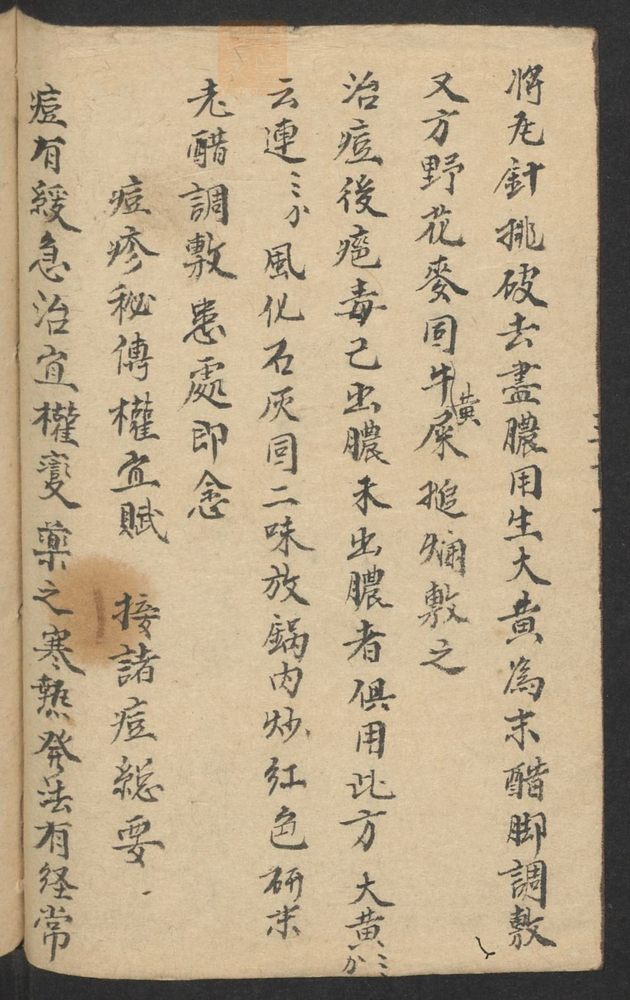 將尨針挑破去盡膿用生大黄為末醋脚調敷
又方野花麥同牛黄屎搥爛敷之
治痘後疤毒已出膿未出膿者俱用此方大黄三分
云連三分風化石灰同二味放鍋内炒紅色研末
老醋調敷患處即念
痘疹秘傳權宜賦 接諸痘総要
痘有緩急治宜權变藥之寒熱発法有经常